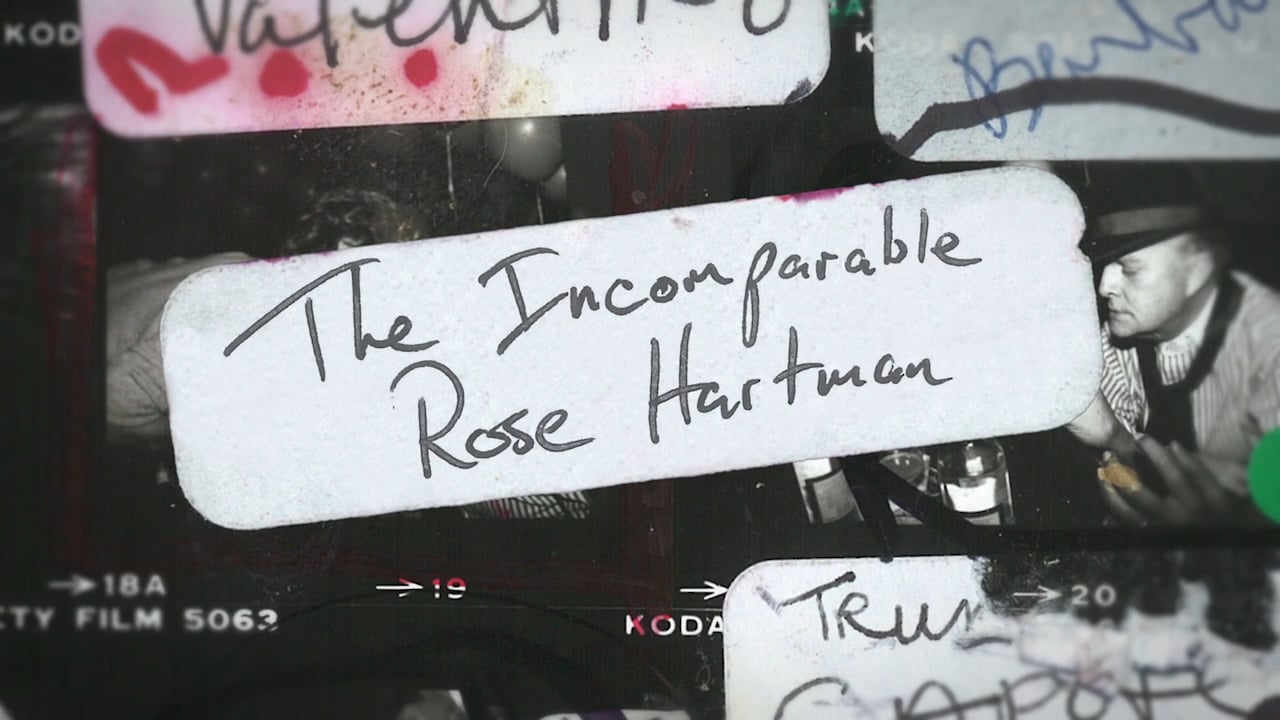 Valentino
KOD
The Incomparable
Rose Hartman
→18A
→19
→20
TY FILM 5063
KODA
TRUM
CAPOTE